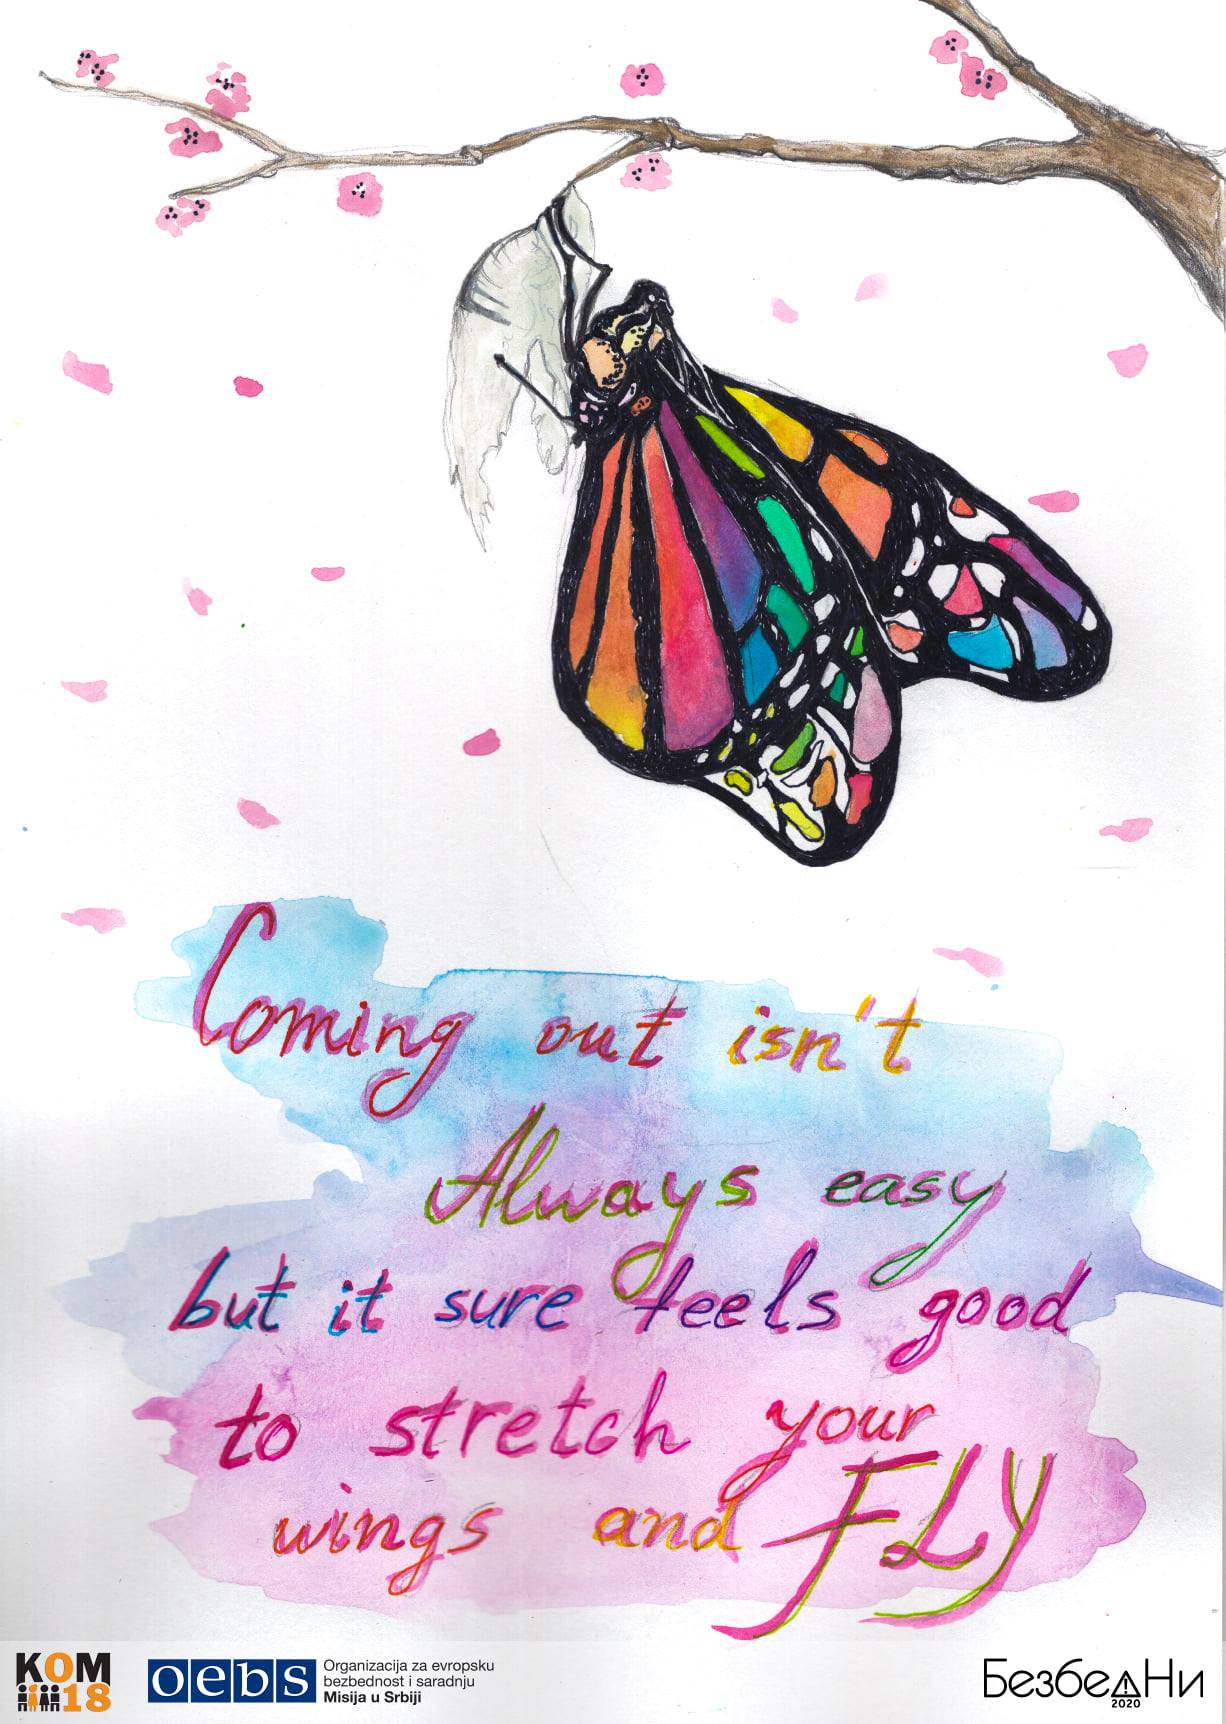 Coming out isn't
Always easy
but it sure feels good
to stretch your
wings and FLY
KOM
18
oebs
Organizacija za evropsku
bezbednost i saradnju
Misija u Srbiji
БезбедНи
2020